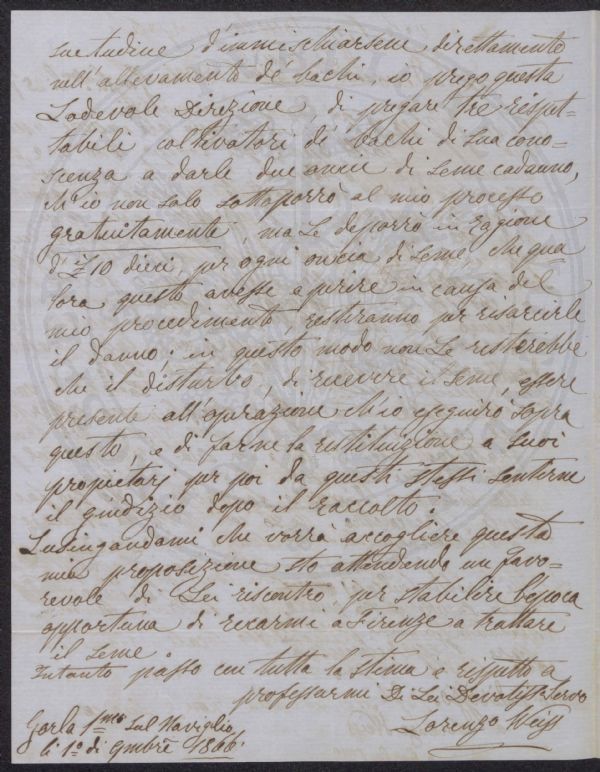 suetudine d'immischiarsene direttamente
nell'allevamento de' bachi, io prego questa
Lodevole Direzione, di pregare tre rispet-
tabili coltivatori de' bachi di sua cono-
scienza a darle due oncie di seme cadauno,
ch'io non solo sottoporrò al mio processo
gratuitamente, ma Le deporrò in ragione
d' 10 dieci, per ogni oncia di seme, che qua-
lora questo avesse a perire in causa del
mio procedimento, restiranno per risarcirle
il danno; in questo modo non Le resterebbe
che il disturbo, di ricevere il seme, essere
presente all'operazione ch'io eseguirò sopra
questo, e di farne la restituzione a suoi
propietarj per poi da questi stessi sentirne
il giudizio dopo il raccolto.
Lusingandomi che vorrà accogliere questa
mia proposizione sto attendendo un favo-
revole di Lei riscontro, per stabilire l'epoca
opportuna di recarmi a Firenze a trattare
il seme.
Intanto passo con tutta la stima e rispetto a
professarmi Di Lei Devotiss. Servo
Lorenzo Weiss
Gorla 1mo Sul Naviglio
li 1o di 9mbre 1866.